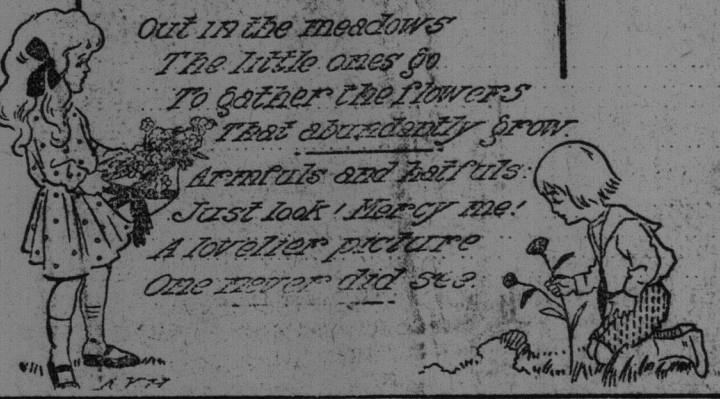 Out in the meadows
The little ones go
To gather the flowers
That abundantly grow.
Armfuls and hatfuls:
Just look! Mercy me!
A lovelier picture
One never did see.